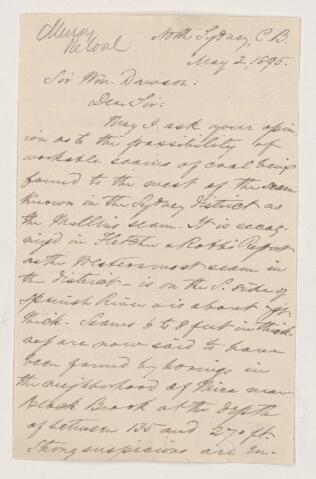 North Sydney, C.B.
May 2, 1895.
Sir Wm. Dawson:
Dear Sir:
May I ask your opin-
ion as to the possibility of
workable seams of coal being
found to the west of the seam
known in the Sydney district as
the Mullins seam. It is recog-
nized in Fletcher & Robb's Report
as the Westernmost seam in
the district - is on the S. side of
Spanish River & is about
thick. Seams 6 to 8 feet in thick-
ness are now said to have
been found by borings in
the neighborhood of
Brook at the depth
of between 135 and 270 ft.
Strong suspicions are en-